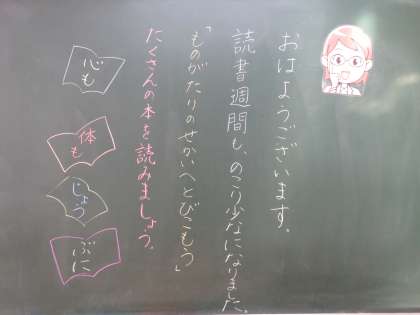 おはようございます。
読書週間も、のこり少なになりました。
「ものがたりのせかいへとびこもう」
たくさんの本を読みましょう。
心も
体も
じょう
ぶに